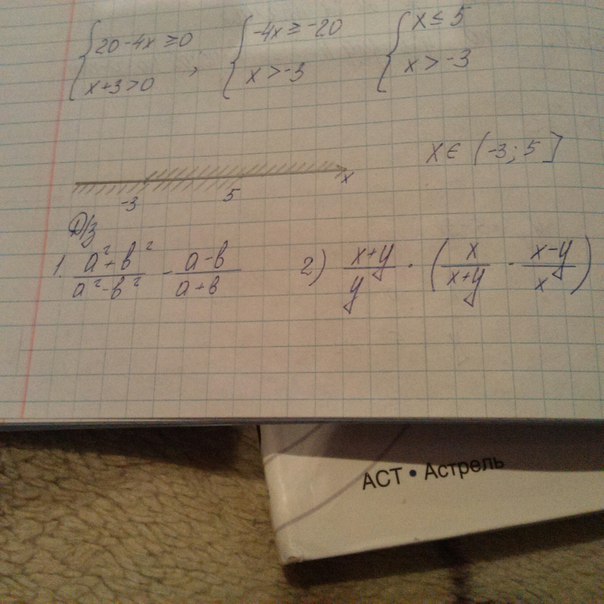 {20-4x≥0 ; {-4x≥-20 {x≤5
{x+3>0 {x>-3 {x>-3
x∈(-3;5]
-3 5 x
Д/з
1. (a²+в²)/(a²-в²) - (a-в)/(a+в) 2) (x+y)/y · (x/(x+y) - (x-y)/x)
АСТ • Астрель